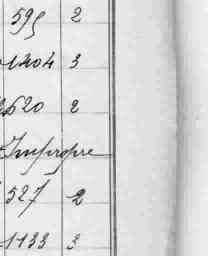 595 2
1204 3
2620 2
Impropre
527 2
1133 3